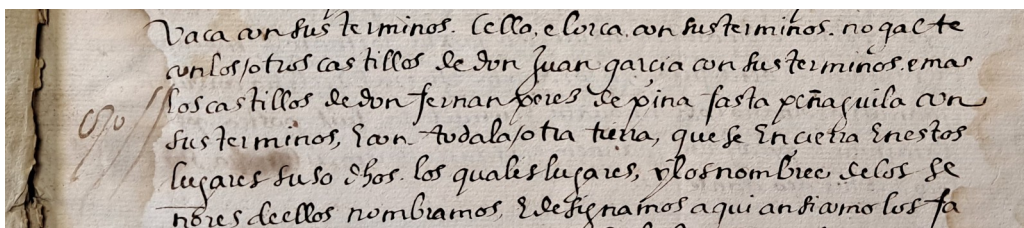 vaca con sus terminos. Cello, e lorca, con sus terminos. nogalte
con los otros castillos de don Juan garcia con sus terminos. e mas
ojo los castillos de don fernan peres de pina fasta peñaguila con
sus terminos, E con toda la otra tierra, que se Encierra En estos
lugares suso dhos. los quales lugares, y los nombres de los se
ñores de ellos nombramos, E designamos aqui ansi como los fa